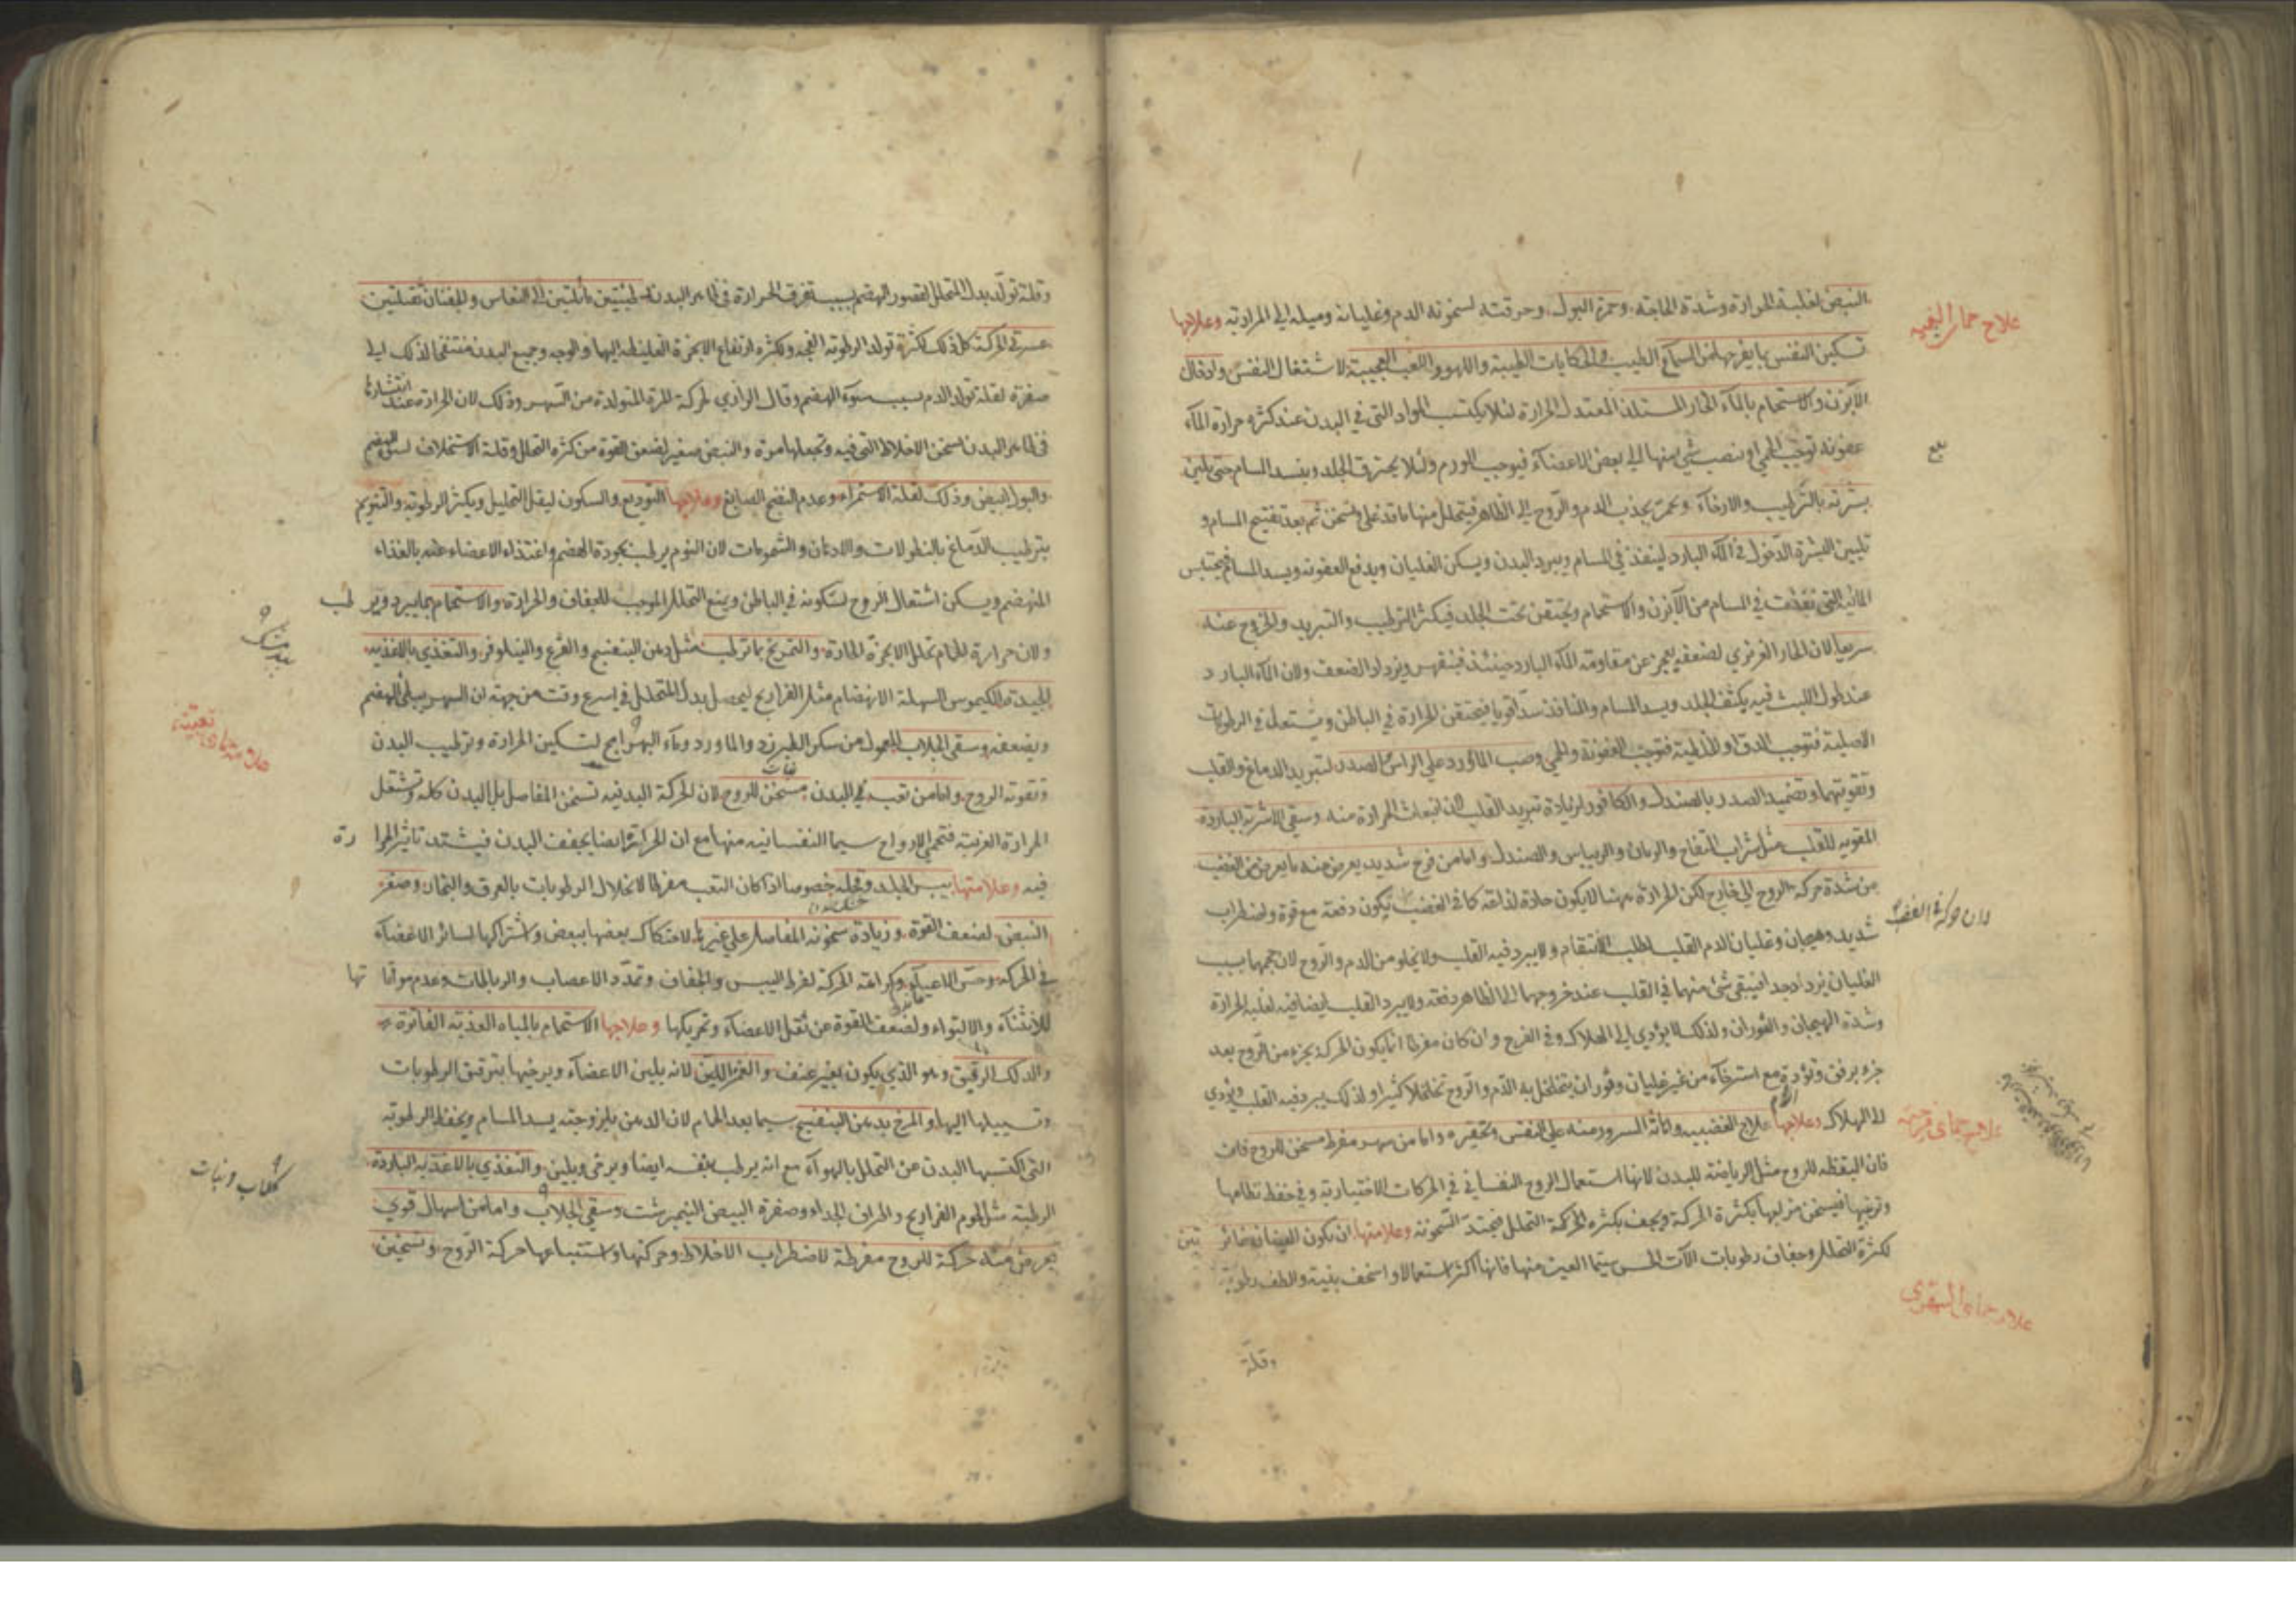 النبض لغلبة الحرارة وشدة الحاجة وحمرة البول وحرقته لسخونة الدم وغليانه وميله الى المرارية وعلاجها
تسكين النفس بما يفرحها من السماع الطيب والحكايات الطيبة واللهو واللعب العجيبة لاشتغال النفس وادخال
الآبزن والاستحمام بالماء الحار المستلذ المعتدل الحرارة لئلا يكتسب المواد التى في البدن عند كثرة حرارة الماء
عفونة توجب الحمى او ينصب شئ منها الى بعض الاعضاء فيوجب الورم ولئلا يحترق الجلد وينسد المسام حتى يلين
بشرته بالترطيب والارخاء ويحمر بجذب الدم والروح الى الظاهر فيتحلل منها ما قد غلى وتسخن ثم بعد تفتيح المسام و
تليين البشرة الدخول في الماء البارد لينفذ في المسام ويبرد البدن ويسكن الغليان ويدفع العفونة ويسد المسام فيحتبس
المائية التى نفذت في المسام من الآبزن والاستحمام ويحتقن تحت الجلد فيكثر الترطيب والتبريد والخروج عنه
سريعا لان الحار الغريزي لضعفه يعجز عن مقاومة الماء البارد حينئذ فينقهر ويزداد الضعف ولان الماء البارد
عند طول اللبث فيه يكثف الجلد ويسد المسام والمنافذ سدا قويا فيحتقن الحرارة في الباطن ويشتعل في الرطوبات
الاصلية فتوجب الدق او الخلطية فتوجب العفونة والحمى وصب الماورد على الراس والصدر لتبريد الدماغ والقلب
وتقويتهما وتضميد الصدر بالصندل والكافور لزيادة تبريد القلب لان انبعاث الحرارة منه وسقى الاشربة الباردة
المقوية للقلب مثل شراب التفاح والرمان والريباس والصندل واما من فرح شديد يعرض منه ما يعرض من الغضب
من شدة حركة الروح الى خارج لكن الحرارة ههنا لا يكون حادة لذاعة كما في الغضب يكون دفعة مع قوة واضطراب
شديد وهيجان وغليان لدم القلب لطلب الانتقام ولا يبرد فيه القلب ولا يخلو من الدم والروح لان حجمها بسبب
الغليان يزداد جدا فيبقى شئ منهما في القلب عند خروجهما الى الظاهر دفعة ولا يبرد القلب ايضا فيه لغلبة الحرارة
وشدة الهيجان والفوران ولذلك لا يؤدي الى الهلاك وفى الفرح وان كان مفرطا انما يكون الحركة بجزء من الروح بعد
جزء برفق وتؤدة مع استرخاء من غير غليان وفوران يتخلخل به الدم والروح تخلخلا كثيرا ولذلك يبرد فيه القلب ويؤدي
الى الهلاك وعلاجها علاج الغضبية واماتة السرور منه على النفس وتحقيره واما من سهر مفرط مسخن للروح فان
فان اليقظة للروح مثل الرياضة للبدن لانها استعمال الروح النفسانى في الحركات الاختيارية وفى حفظ نظامها
وترتيبها فيسخن مزاجها بكثرة الحركة ويجف بكثرة الحركة التحلل فيحتد السخونة وعلامتها ان يكون العينان غائرتين
لكثرة التحلل وجفاف رطوبات الآلات الحس سيما العين منها فانها اكثر استعمالا واسخف بنية والطف رطوبة
وقلة
علاج حمى الغضبية
بلغ
لان حركة في الغضب
علاج حماى فرحية
علاج حماى السهرى
وقلة تولد بدل المتحلل لقصور الهضم بسبب تفرق الحرارة في ظاهر البدن خبيثتين مائلتين الى النعاس والجفنان ثقيلتين
عسرتى الحركة كل ذلك لكثرة تولد الرطوبة الفجة ولكثرة ارتفاع الابخرة الغليظة اليها والوجه وجميع البدن منتفخا لذلك الى
صفرة لقلة تولد الدم بسبب سوء الهضم وقال الرازي لحركة المرة المتولدة من السهر وذلك لان الحرارة عند انتشارها
في ظاهر البدن تسخن الاخلاط التى فيه وتجعلها مرة والنبض صغير لضعف القوة من كثرة التحلل وقلة الاستخلاف لسوء الهضم
والبول ابيض وذلك لقلة الاستمراء وعدم النضج الصابغ وعلاجها التوديع والسكون ليقل التحليل ويكثر الرطوبة والتنويم
بترطيب الدماغ بالنطولات والادهان والشمومات لان النوم يرطب بجودة الهضم واغتذاء الاعضاء عنه بالغذاء
المنهضم ويسكن اشتعال الروح لسكونه في الباطن ويمنع التحلل الموجب للجفاف والحرارة والاستحمام بما يبرد ويرطب
ولان حرارة الحمام تحلل الابخرة الحادة والتمريخ بما ترطب مثل دهن البنفسج والقرع والنيلوفر والتغذي بالاغذية
الجيدة الكيموس السهلة الانهضام مثل الفراريج ليحصل بدل المتحلل في اسرع وقت من جهة ان السهر يبطئ الهضم
ويضعفه وسقى الجلاب المعمول من سكر الطبرزد والماورد وماء البهرامج لتسكين الحرارة وترطيب البدن
وتقوية الروح واما من تعب في البدن مسخن للروح لان الحركة البدنية تسخن المفاصل بل البدن كله وتشتعل
الحرارة الغريبة فتحمى الارواح سيما النفسانية منها مع ان الحركة ايضا يجفف البدن فيشتد تاثير الحرارة
فيه وعلامتها يبس الجلد وقحله خصوصا اذا كان التعب مفرطا لانحلال الرطوبات بالعرق والبخار وصغر
النبض لضعف القوة وزيادة سخونة المفاصل على غيرها لاحتكاك بعضها ببعض واشتراكها لسائر الاعضاء
في الحركة وحس الاعياء وكراهة الحركة لفرط اليبس والجفاف وتمدد الاعصاب والرباطات وعدم مواتاتها
للانثناء والالتواء ولضعف القوة عن نقل الاعضاء وتحريكها وعلاجها الاستحمام بالمياه العذبة الفاترة
والدلك الرقيق وهو الذي يكون بغير عنف والغمز اللين لانه يلين الاعضاء ويرخيها بترقيق الرطوبات
وتسييلها اليها والمرخ بدهن البنفسج سيما بعد الحمام لان الدهن بلزوجته يسد المسام ويحفظ الرطوبة
التى اكتسبها البدن عن التحلل بالهواء مع انه يرطب بنفسه ايضا ويرخى ويلين والتغذي بالاغذية الباردة
الرطبة مثل لحوم الفراريج واطراف الجداء وصفرة البيض النيمبرشت وسقى الجلاب واما من اسهال قوي
يعرض منه حركة للروح مفرطة لاضطراب الاخلاط وحركتها واستتباعها حركة الروح وتسخين
علامة حماى تعبية
كلاب ونبات